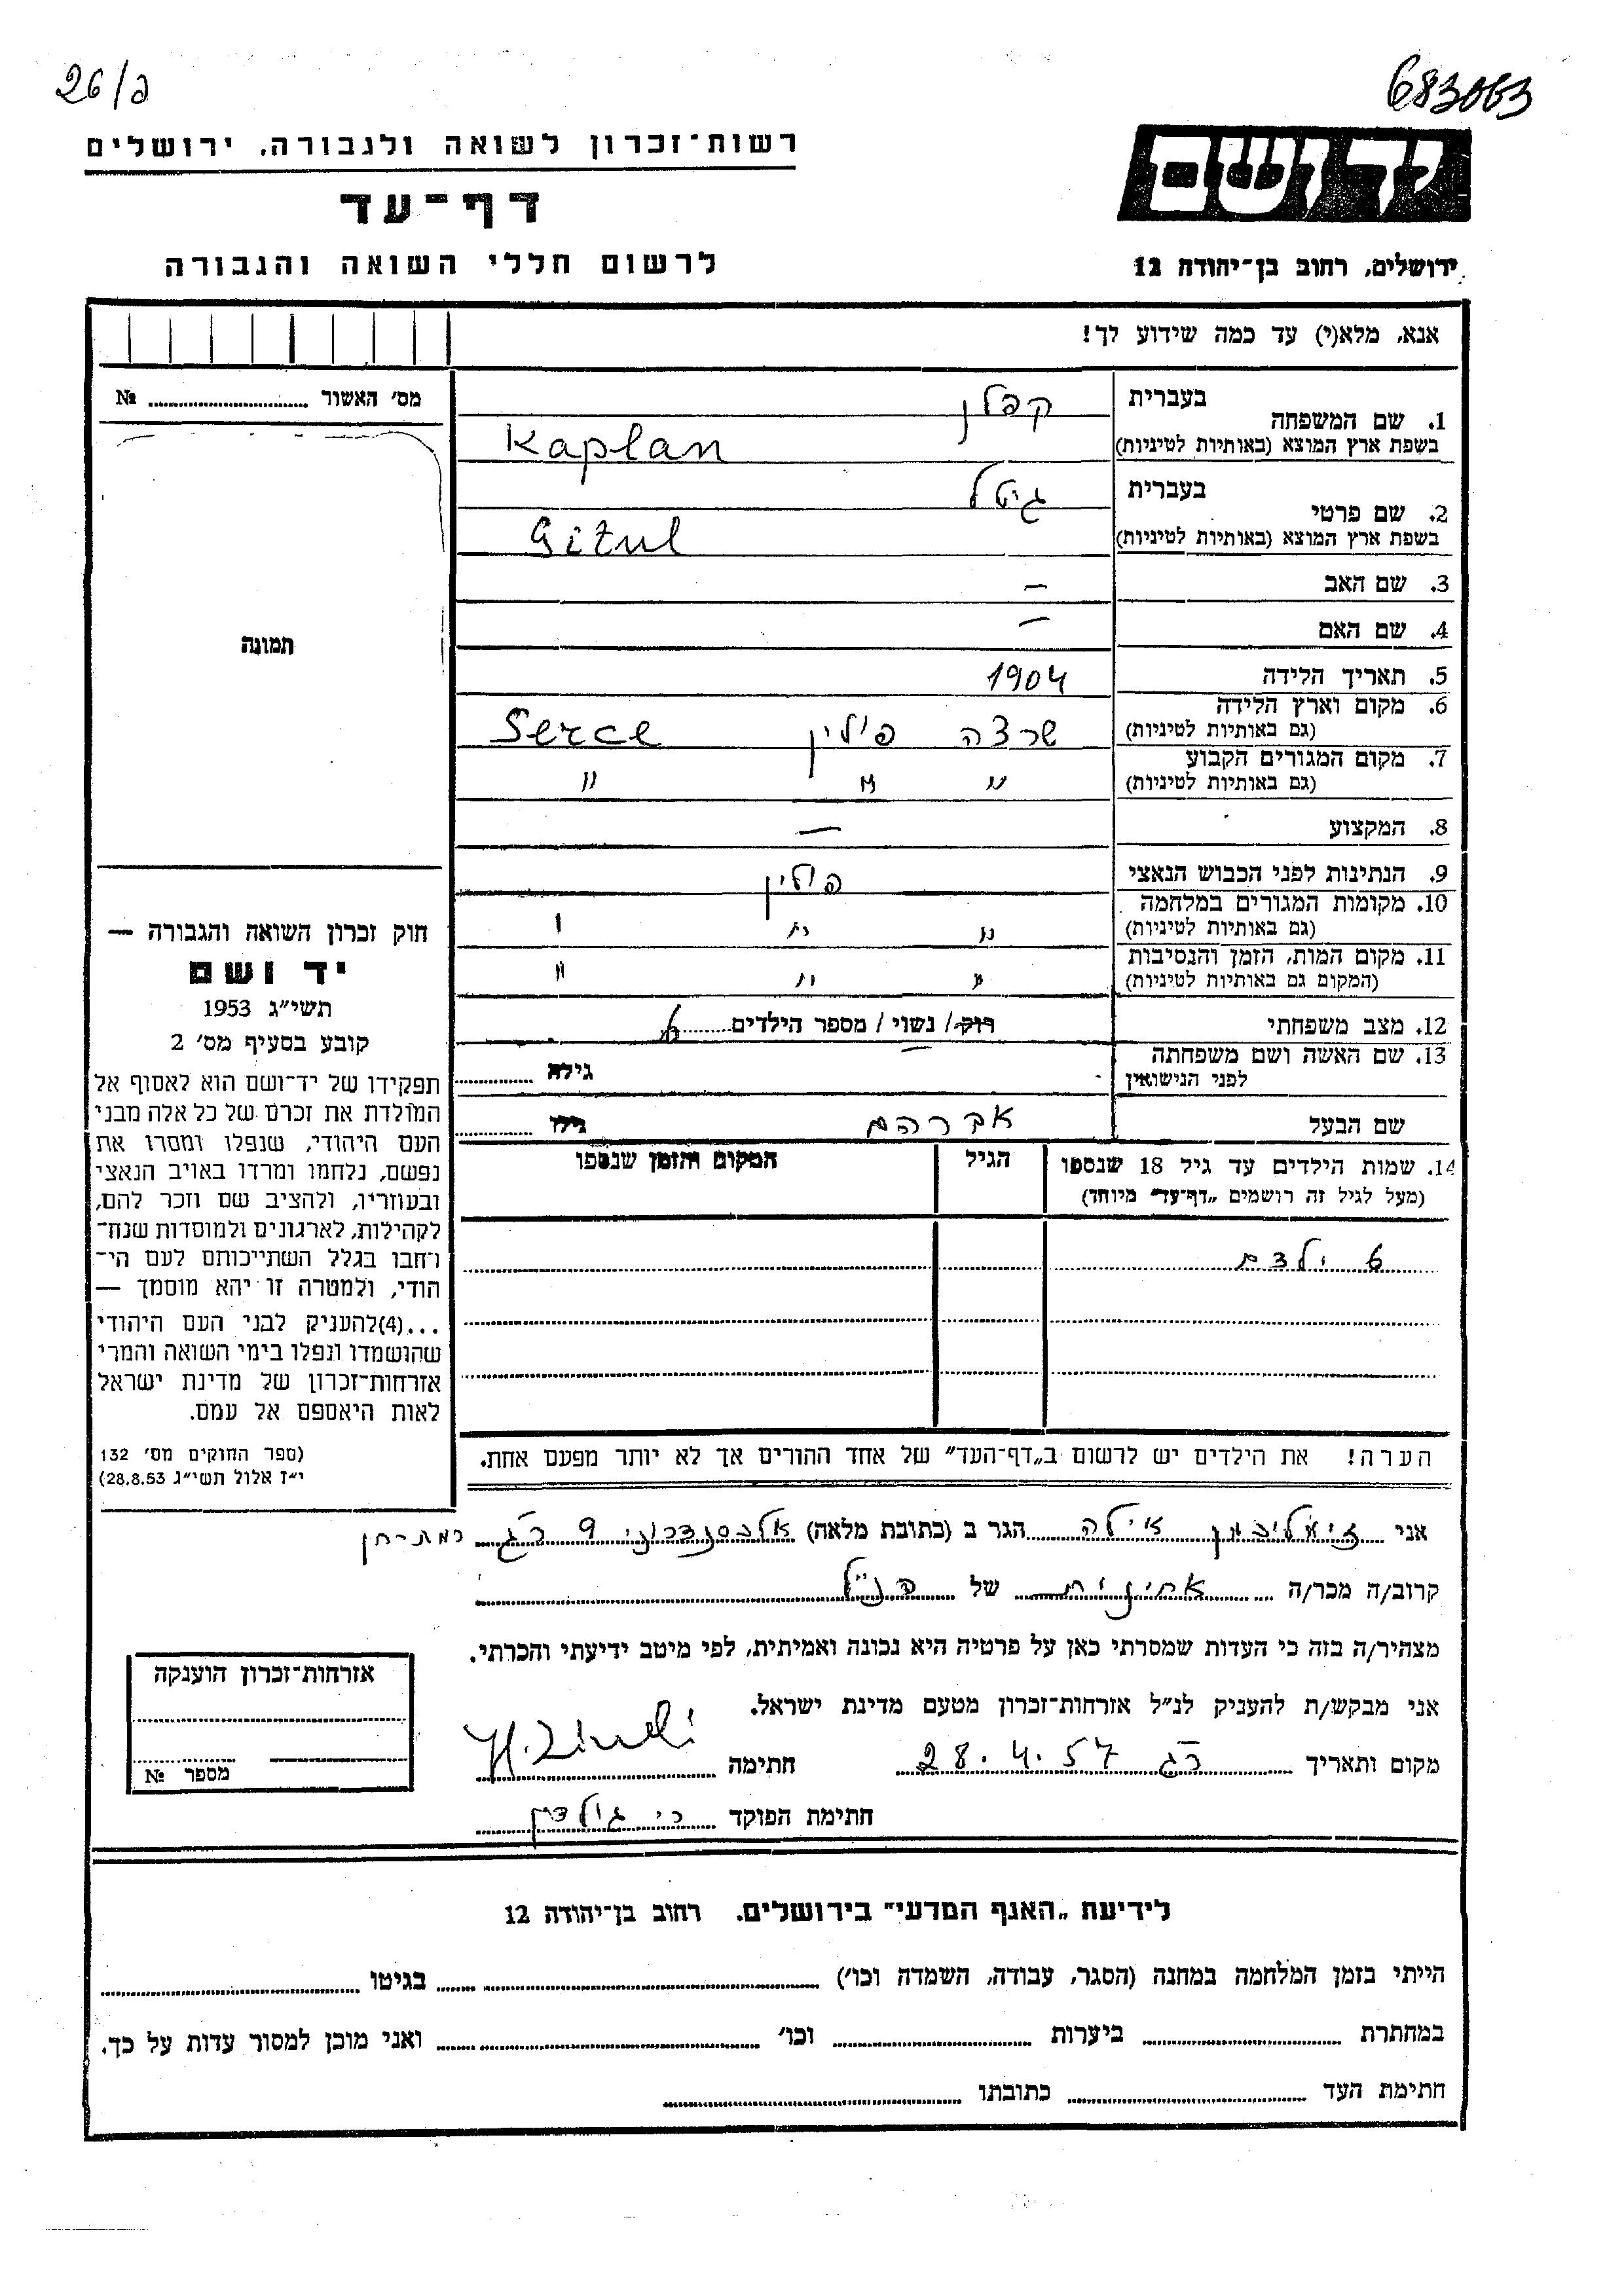 26/ג
683063
רשות־זכרון לשואה ולגבורה, ירושלים
יד ושם
דף־עד
לרשום חללי השואה והגבורה
ירושלים, רחוב בן־יהודה 12
אנא, מלא(י) עד כמה שידוע לך!
מס׳ האשור ........ №
תמונה
1. שם המשפחה בעברית קפלן
בשפת ארץ המוצא (באותיות לטיניות) Kaplan
2. שם פרטי בעברית גיטל
בשפת ארץ המוצא (באותיות לטיניות) Gitul
3. שם האב –
4. שם האם –
5. תאריך הלידה 1904
6. מקום וארץ הלידה שרצה פולין Serce
(גם באותיות לטיניות)
7. מקום המגורים הקבוע " " "
(גם באותיות לטיניות)
8. המקצוע –
9. הנתינות לפני הכבוש הנאצי פולין
10. מקומות המגורים במלחמה " " "
(גם באותיות לטיניות)
11. מקום המות, הזמן והנסיבות " " "
(המקום גם באותיות לטיניות)
12. מצב משפחתי רוק / נשוי / מספר הילדים 6
13. שם האשה ושם משפחתה – גילה
לפני הנישואין
שם הבעל אברהם גילו
14. שמות הילדים עד גיל 18 שנספו הגיל המקום והזמן שנספו
(מעל לגיל זה רושמים „דף־עד״ מיוחד)
6 ילדם
הערה! את הילדים יש לרשום ב„דף־העד״ של אחד ההורים אך לא יותר מפעם אחת.
חוק זכרון השואה והגבורה —
יד ושם
תשי״ג 1953
קובע בסעיף מס׳ 2
תפקידו של יד־ושם הוא לאסוף אל
המולדת את זכרם של כל אלה מבני
העם היהודי, שנפלו ומסרו את
נפשם, נלחמו ומרדו באויב הנאצי
ובעוזריו, ולהציב שם וזכר להם,
לקהילות, לארגונים ולמוסדות שנח־
רחבו בגלל השתייכותם לעם הי־
הודי, ולמטרה זו יהא מוסמך —
...(4)להעניק לבני העם היהודי
שהושמדו ונפלו בימי השואה והמרי
אזרחות־זכרון של מדינת ישראל
לאות היאספם אל עמם.
(ספר החוקים מס׳ 132
י״ז אלול תשי״ג 28.8.53)
אני אילה הגר ב (כתובת מלאה) 9 רג רמת-חן
קרוב/ה מכר/ה אחינית של הנ״ל
מצהיר/ה בזה כי העדות שמסרתי כאן על פרטיה היא נכונה ואמיתית, לפי מיטב ידיעתי והכרתי.
אני מבקש/ת להעניק לנ״ל אזרחות־זכרון מטעם מדינת ישראל.
מקום ותאריך רג 28.4.57 חתימה
חתימת הפוקד
אזרחות־זכרון הוענקה
מספר №
לידיעת „האגף המדעי״ בירושלים, רחוב בן־יהודה 12
הייתי בזמן המלחמה במחנה (הסגר, עבודה, השמדה וכו׳) בגיטו
במחתרת ביערות וכו׳ ואני מוכן למסור עדות על כך.
חתימת העד כתובתו